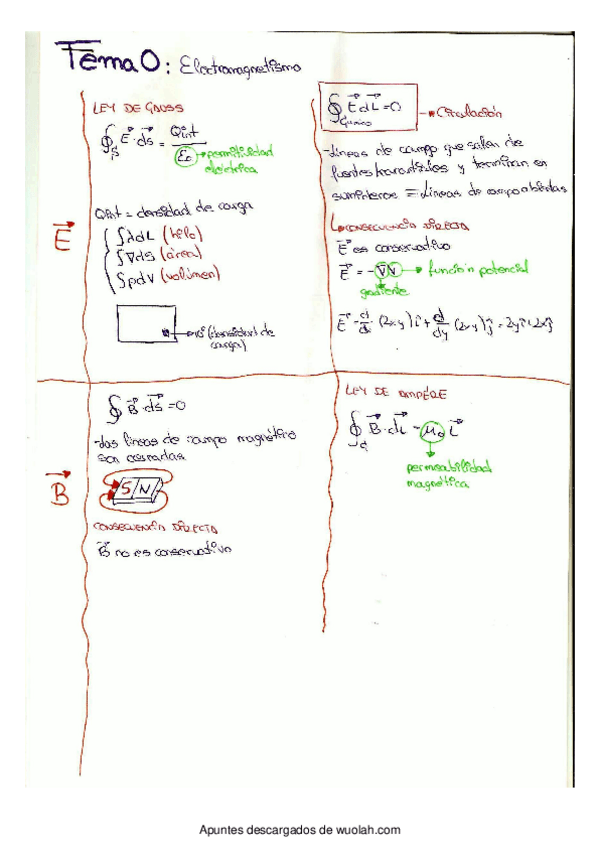 Tema 0: Electromagnetismo
LEY DE GAUSS
∮s E⃗·ds⃗ = Qint / ε₀ → permitividad
eléctrica
Qint = densidad de carga
∫λdL (hilo)
∫∇ds (área)
∫ρdV (volúmen)
(densidad de
carga)
E⃗
∮ E⃗ dL⃗ = 0 → Circulación
-Líneas de campo que salen de
y terminan en
sumideros = Líneas de campo abiertas
CONSECUENCIA DIRECTA
E⃗ es conservativo
E⃗ = -∇V → función potencial
gradiente
E⃗ = d/dx (2xy) i⃗ + d/dy (2xy) j⃗ = 2y i⃗ + 2x j⃗
∮s B⃗·ds⃗ = 0
-Las líneas de campo magnético
son cerradas
S/N
B⃗
CONSECUENCIA DIRECTA
B⃗ no es conservativo
LEY DE AMPÉRE
∮ B⃗·dL⃗ = μ₀ I⃗
permeabilidad
magnética
Apuntes descargados de wuolah.com